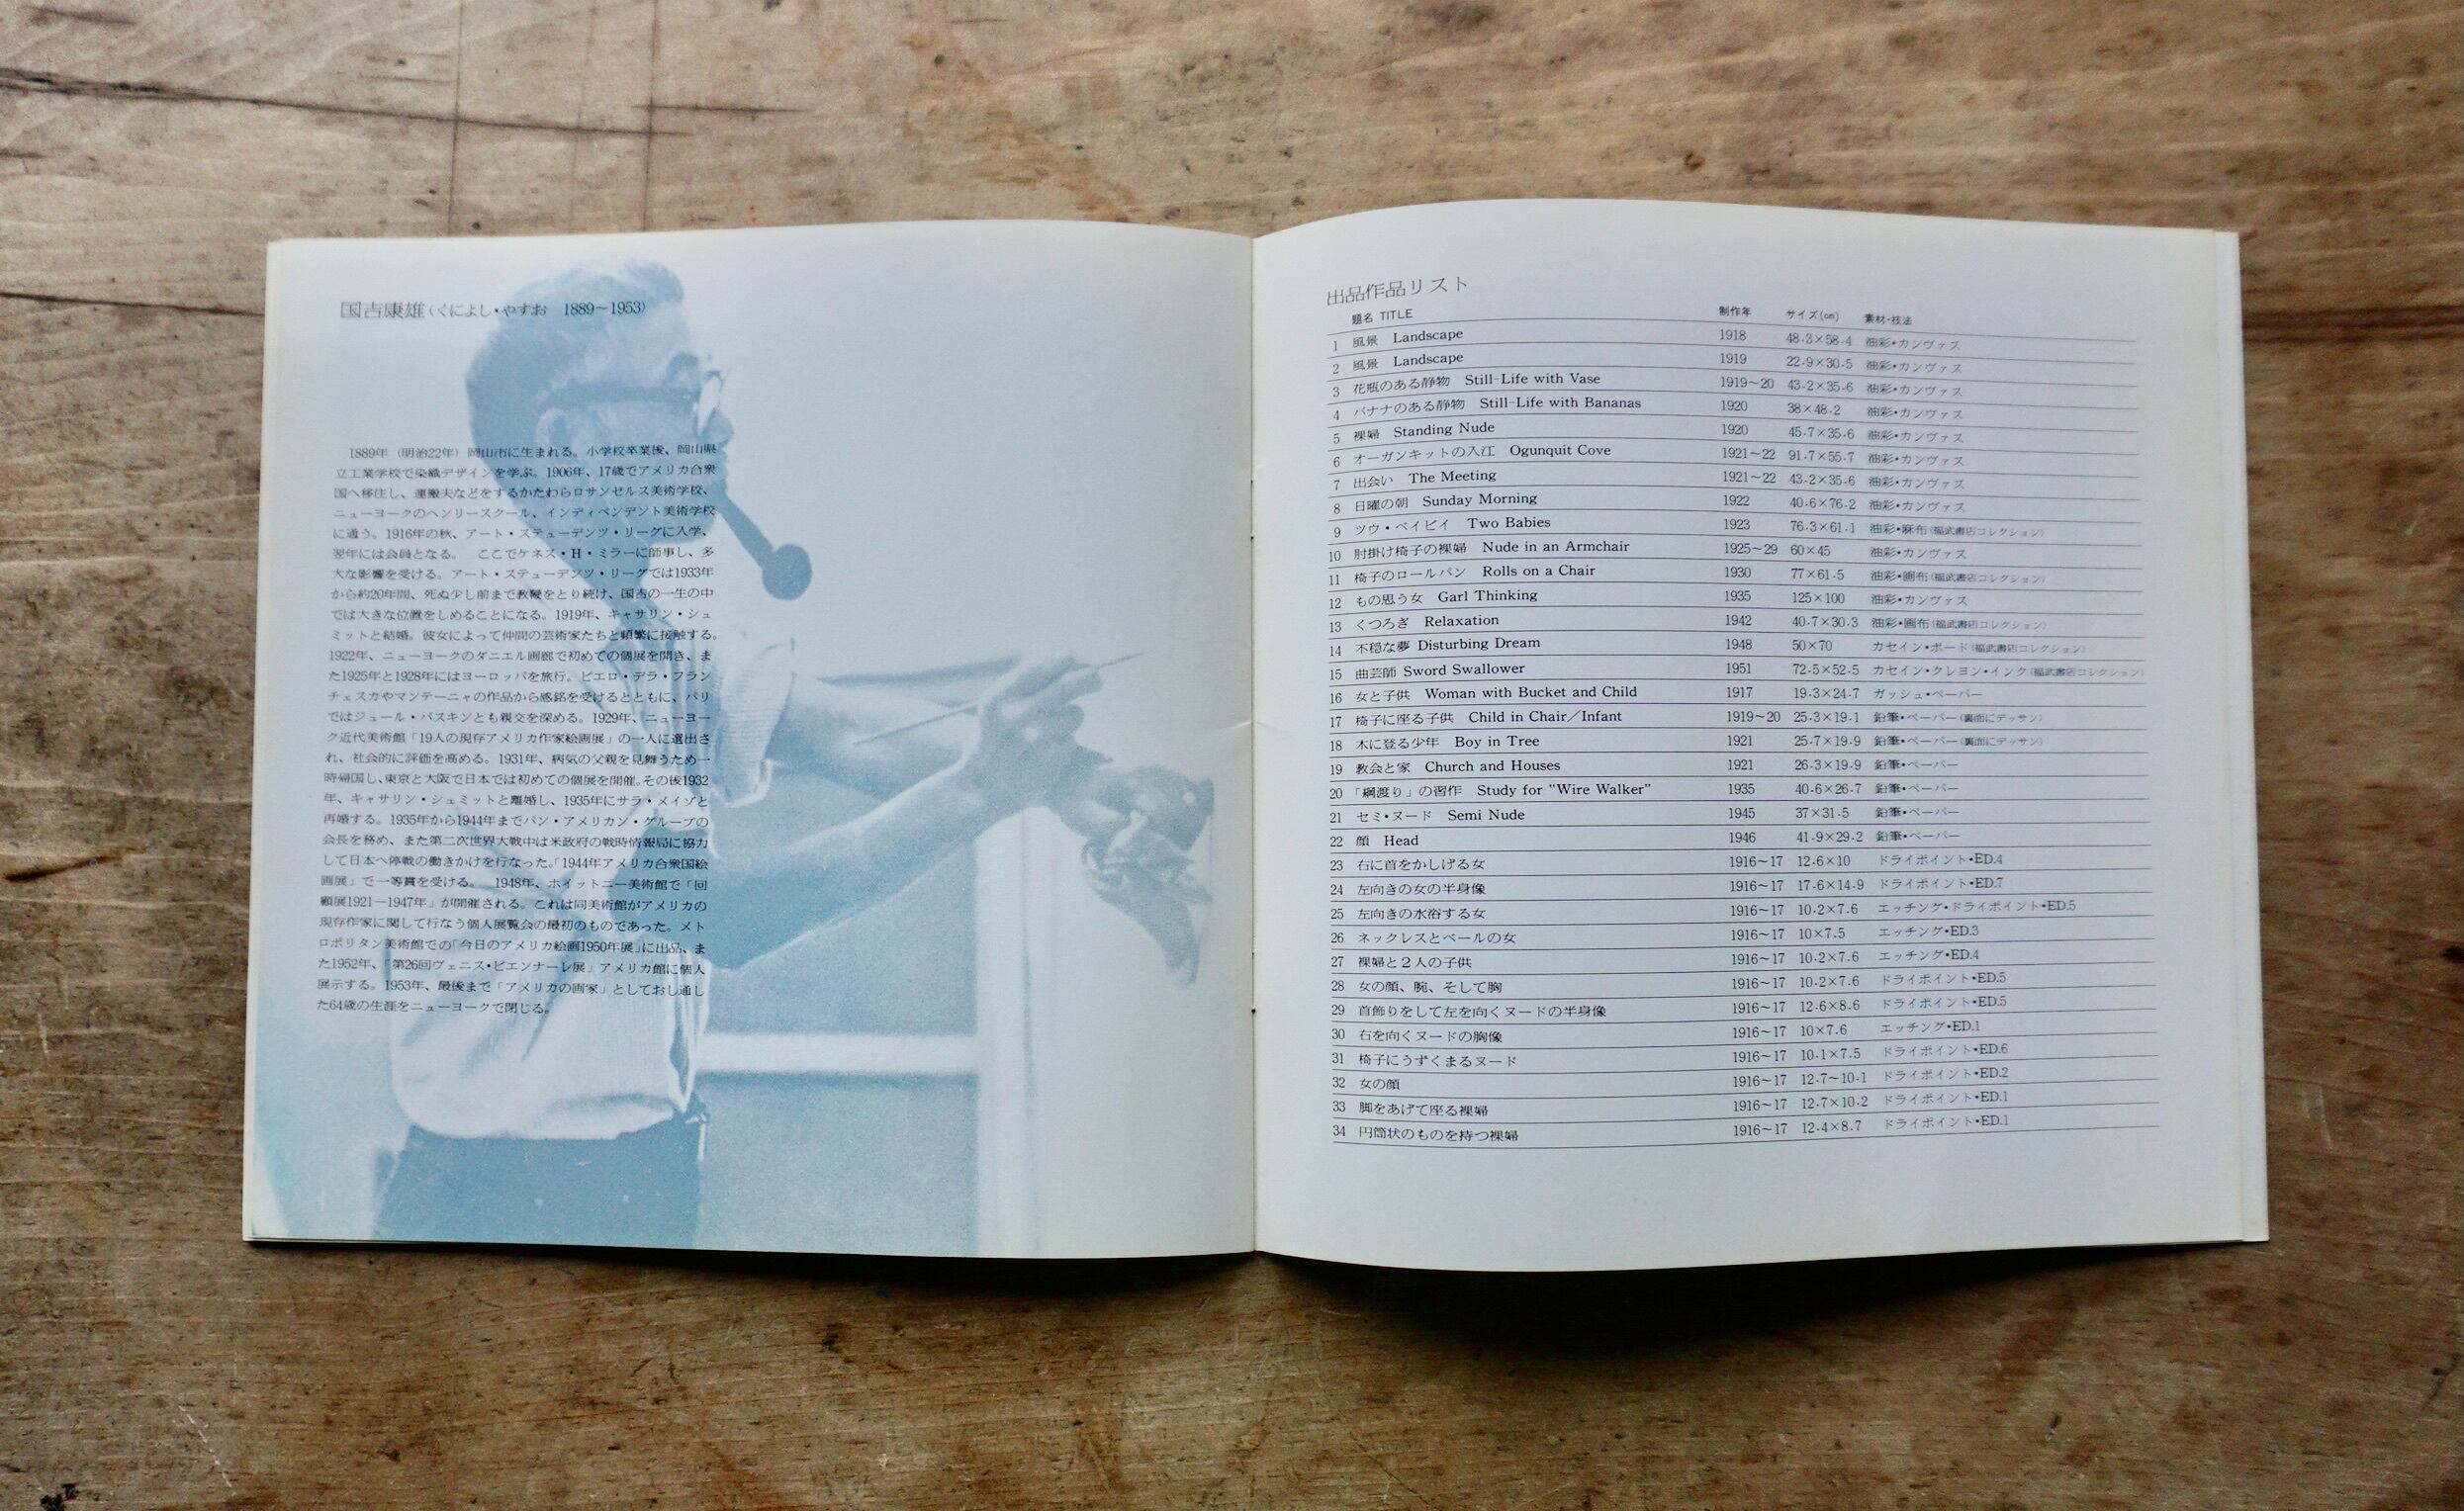 国吉康雄(くによし・やすお 1889〜1953)
1889年(明治22年)岡山市に生まれる。小学校卒業後、岡山県
立工業学校で染織デザインを学ぶ。1906年、17歳でアメリカ合衆
国へ移住し、運搬夫などをするかたわらロサンゼルス美術学校、
ニューヨークのヘンリースクール、インディペンデント美術学校
に通う。1916年の秋、アート・ステューデンツ・リーグに入学、
翌年には会員となる。 ここでケネス・H・ミラーに師事し、多
大な影響を受ける。アート・ステューデンツ・リーグでは1933年
から約20年間、死ぬ少し前まで教鞭をとり続け、国吉の一生の中
では大きな位置をしめることになる。1919年、キャサリン・シュ
ミットと結婚。彼女によって仲間の芸術家たちと頻繁に接触する。
1922年、ニューヨークのダニエル画廊で初めての個展を開き、ま
た1925年と1928年にはヨーロッパを旅行。ピエロ・デラ・フラン
チェスカやマンテーニャの作品から感銘を受けるとともに、パリ
ではジュール・パスキンとも親交を深める。1929年、ニューヨー
ク近代美術館「19人の現存アメリカ作家絵画展」の一人に選出さ
れ、社会的に評価を高める。1931年、病気の父親を見舞うため一
時帰国し、東京と大阪で日本では初めての個展を開催。その後1932
年、キャサリン・シュミットと離婚し、1935年にサラ・メイゾと
再婚する。1935年から1944年までパン・アメリカン・グループの
会長を務め、また第二次世界大戦中は米政府の戦時情報局に協力
して日本へ停戦の働きかけを行なった。「1944年アメリカ合衆国絵
画展」で一等賞を受ける。 1948年、ホイットニー美術館で「回
顧展1921―1947年」が開催される。これは同美術館がアメリカの
現存作家に関して行なう個人展覧会の最初のものであった。メト
ロポリタン美術館での「今日のアメリカ絵画1950年展」に出品、ま
た1952年、「第26回ヴェニス・ビエンナーレ展」アメリカ館に個人
展示する。1953年、最後まで「アメリカの画家」としておし通し
た64歳の生涯をニューヨークで閉じる。
出品作品リスト
題名 TITLE 制作年 サイズ(cm) 素材・技法
1 風景 Landscape 1918 48.3×58.4 油彩・カンヴァス
2 風景 Landscape 1919 22.9×30.5 油彩・カンヴァス
3 花瓶のある静物 Still-Life with Vase 1919〜20 43.2×35.6 油彩・カンヴァス
4 バナナのある静物 Still-Life with Bananas 1920 38×48.2 油彩・カンヴァス
5 裸婦 Standing Nude 1920 45.7×35.6 油彩・カンヴァス
6 オーガンキットの入江 Ogunquit Cove 1921〜22 91.7×55.7 油彩・カンヴァス
7 出会い The Meeting 1921〜22 43.2×35.6 油彩・カンヴァス
8 日曜の朝 Sunday Morning 1922 40.6×76.2 油彩・カンヴァス
9 ツウ・ベイビイ Two Babies 1923 76.3×61.1 油彩・麻布(福武書店コレクション)
10 肘掛け椅子の裸婦 Nude in an Armchair 1925〜29 60×45 油彩・カンヴァス
11 椅子のロールパン Rolls on a Chair 1930 77×61.5 油彩・画布(福武書店コレクション)
12 もの思う女 Garl Thinking 1935 125×100 油彩・カンヴァス
13 くつろぎ Relaxation 1942 40.7×30.3 油彩・画布(福武書店コレクション)
14 不穏な夢 Disturbing Dream 1948 50×70 カセイン・ボード(福武書店コレクション)
15 曲芸師 Sword Swallower 1951 72.5×52.5 カセイン・クレヨン・インク(福武書店コレクション)
16 女と子供 Woman with Bucket and Child 1917 19.3×24.7 ガッシュ・ペーパー
17 椅子に座る子供 Child in Chair／Infant 1919〜20 25.3×19.1 鉛筆・ペーパー(裏面にデッサン)
18 木に登る少年 Boy in Tree 1921 25.7×19.9 鉛筆・ペーパー(裏面にデッサン)
19 教会と家 Church and Houses 1921 26.3×19.9 鉛筆・ペーパー
20 「綱渡り」の習作 Study for "Wire Walker" 1935 40.6×26.7 鉛筆・ペーパー
21 セミ・ヌード Semi Nude 1945 37×31.5 鉛筆・ペーパー
22 顔 Head 1946 41.9×29.2 鉛筆・ペーパー
23 右に首をかしげる女 1916〜17 12.6×10 ドライポイント・ED.4
24 左向きの女の半身像 1916〜17 17.6×14.9 ドライポイント・ED.7
25 左向きの水浴する女 1916〜17 10.2×7.6 エッチング・ドライポイント・ED.5
26 ネックレスとベールの女 1916〜17 10×7.5 エッチング・ED.3
27 裸婦と2人の子供 1916〜17 10.2×7.6 エッチング・ED.4
28 女の顔、腕、そして胸 1916〜17 10.2×7.6 ドライポイント・ED.5
29 首飾りをして左を向くヌードの半身像 1916〜17 12.6×8.6 ドライポイント・ED.5
30 右を向くヌードの胸像 1916〜17 10×7.6 エッチング・ED.1
31 椅子にうずくまるヌード 1916〜17 10.1×7.5 ドライポイント・ED.6
32 女の顔 1916〜17 12.7〜10.1 ドライポイント・ED.2
33 脚をあげて座る裸婦 1916〜17 12.7×10.2 ドライポイント・ED.1
34 円筒状のものを持つ裸婦 1916〜17 12.4×8.7 ドライポイント・ED.1